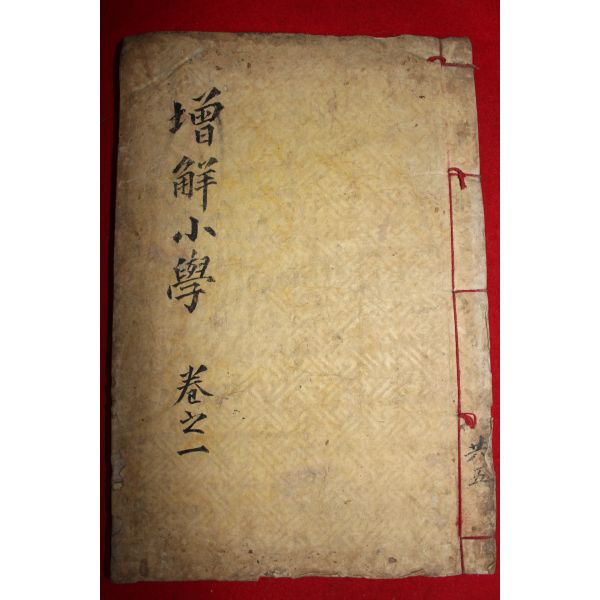 增觧小學 卷之一
共五